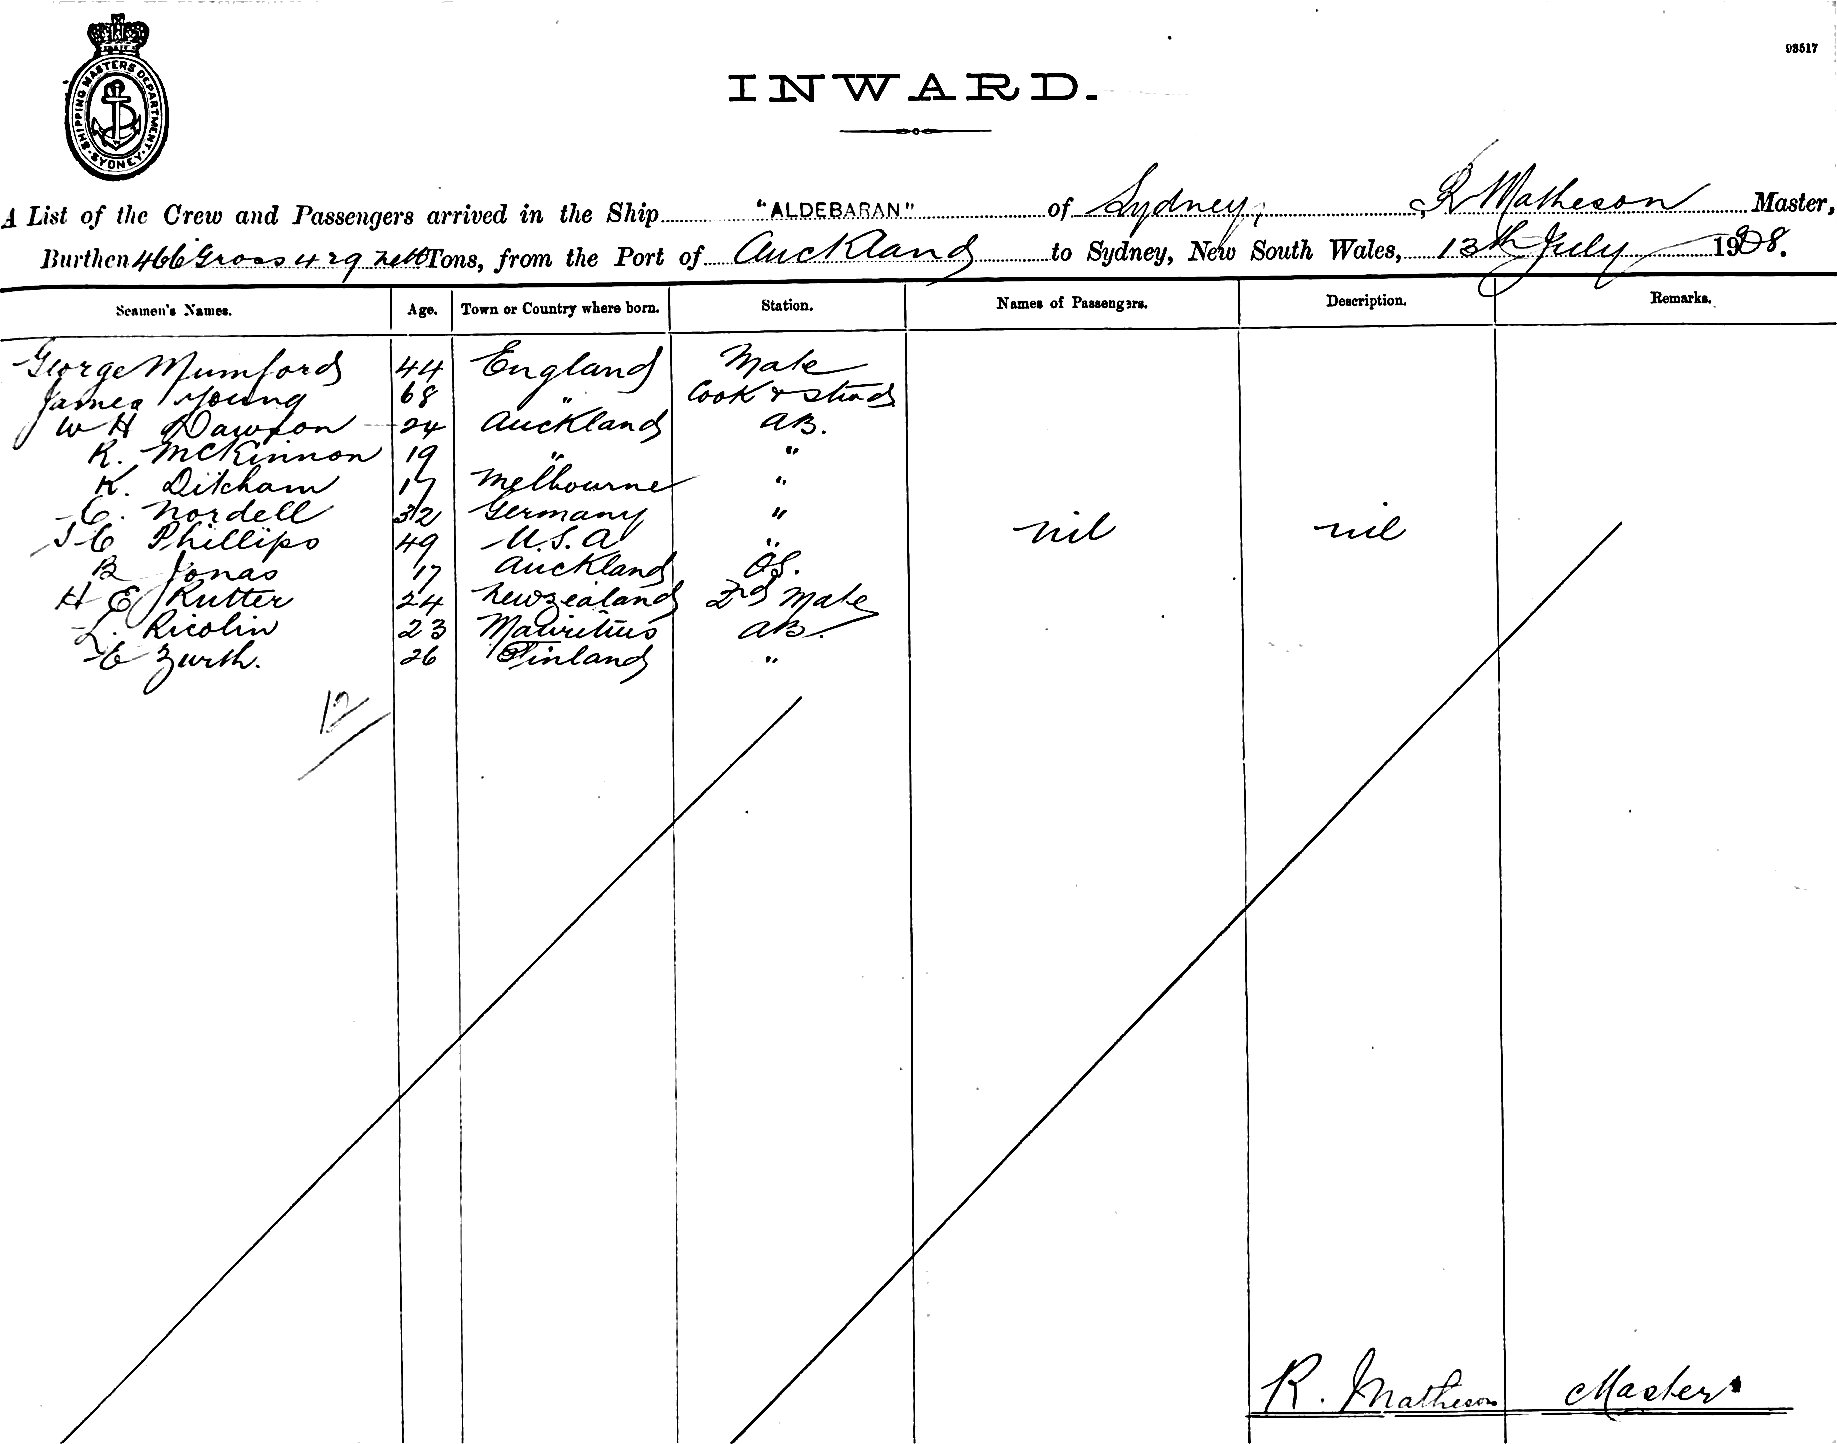 93517
SHIPPING MASTERS DEPARTMENT
SYDNEY
INWARD.
A List of the Crew and Passengers arrived in the Ship "ALDEBARAN" of Sydney, R Matheson Master,
Burthen 466 Gross 429 nett Tons, from the Port of Auckland to Sydney, New South Wales, 13th July 1908.
Seamen's Names. Age. Town or Country where born. Station. Names of Passengers. Description. Remarks.
George Mumford 44 England Mate
James Young 68 " Cook & Stwd
W H Dawson 24 Auckland AB.
R. McKinnon 19 " "
K. Ditcham 17 Melbourne "
C. Nordell 32 Germany "
J C Phillips 49 U.S.A "
nil nil
B Jonas 17 Auckland OS.
H E Rutter 24 New Zealand 2nd Mate
L. Ricolin 23 Mauritius AB.
E Zurth. 26 Finland "
12
R. Matheson Master